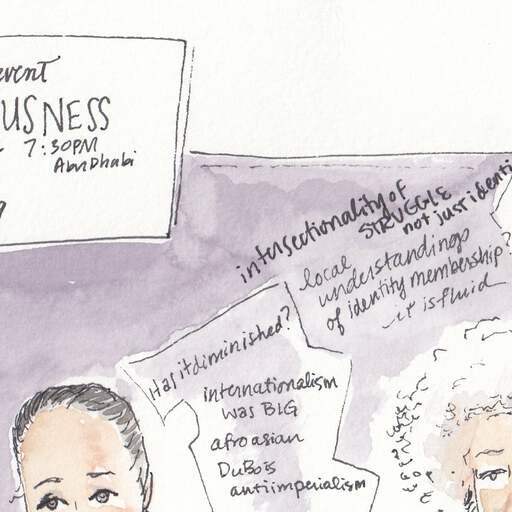 event
USNESS
7:30PM
AbuDhabi
9
intersectionality of
STRUGGLE
not just identi
local
understandings
of identity membership?
- it is fluid
Has it diminished?
internationalism
was BIG
afroasian
DuBois
antiimperialism